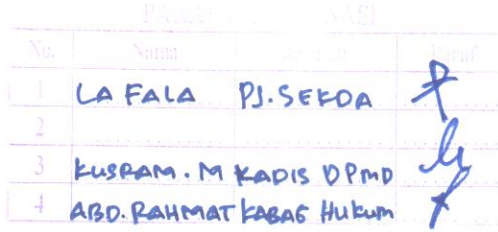 No. Nama Jabatan Paraf
1 LA FALA PJ. SEKDA
2
3 KUSRAM. M KADIS DPMD
4 ABD. RAHMAT KABAG HUKUM